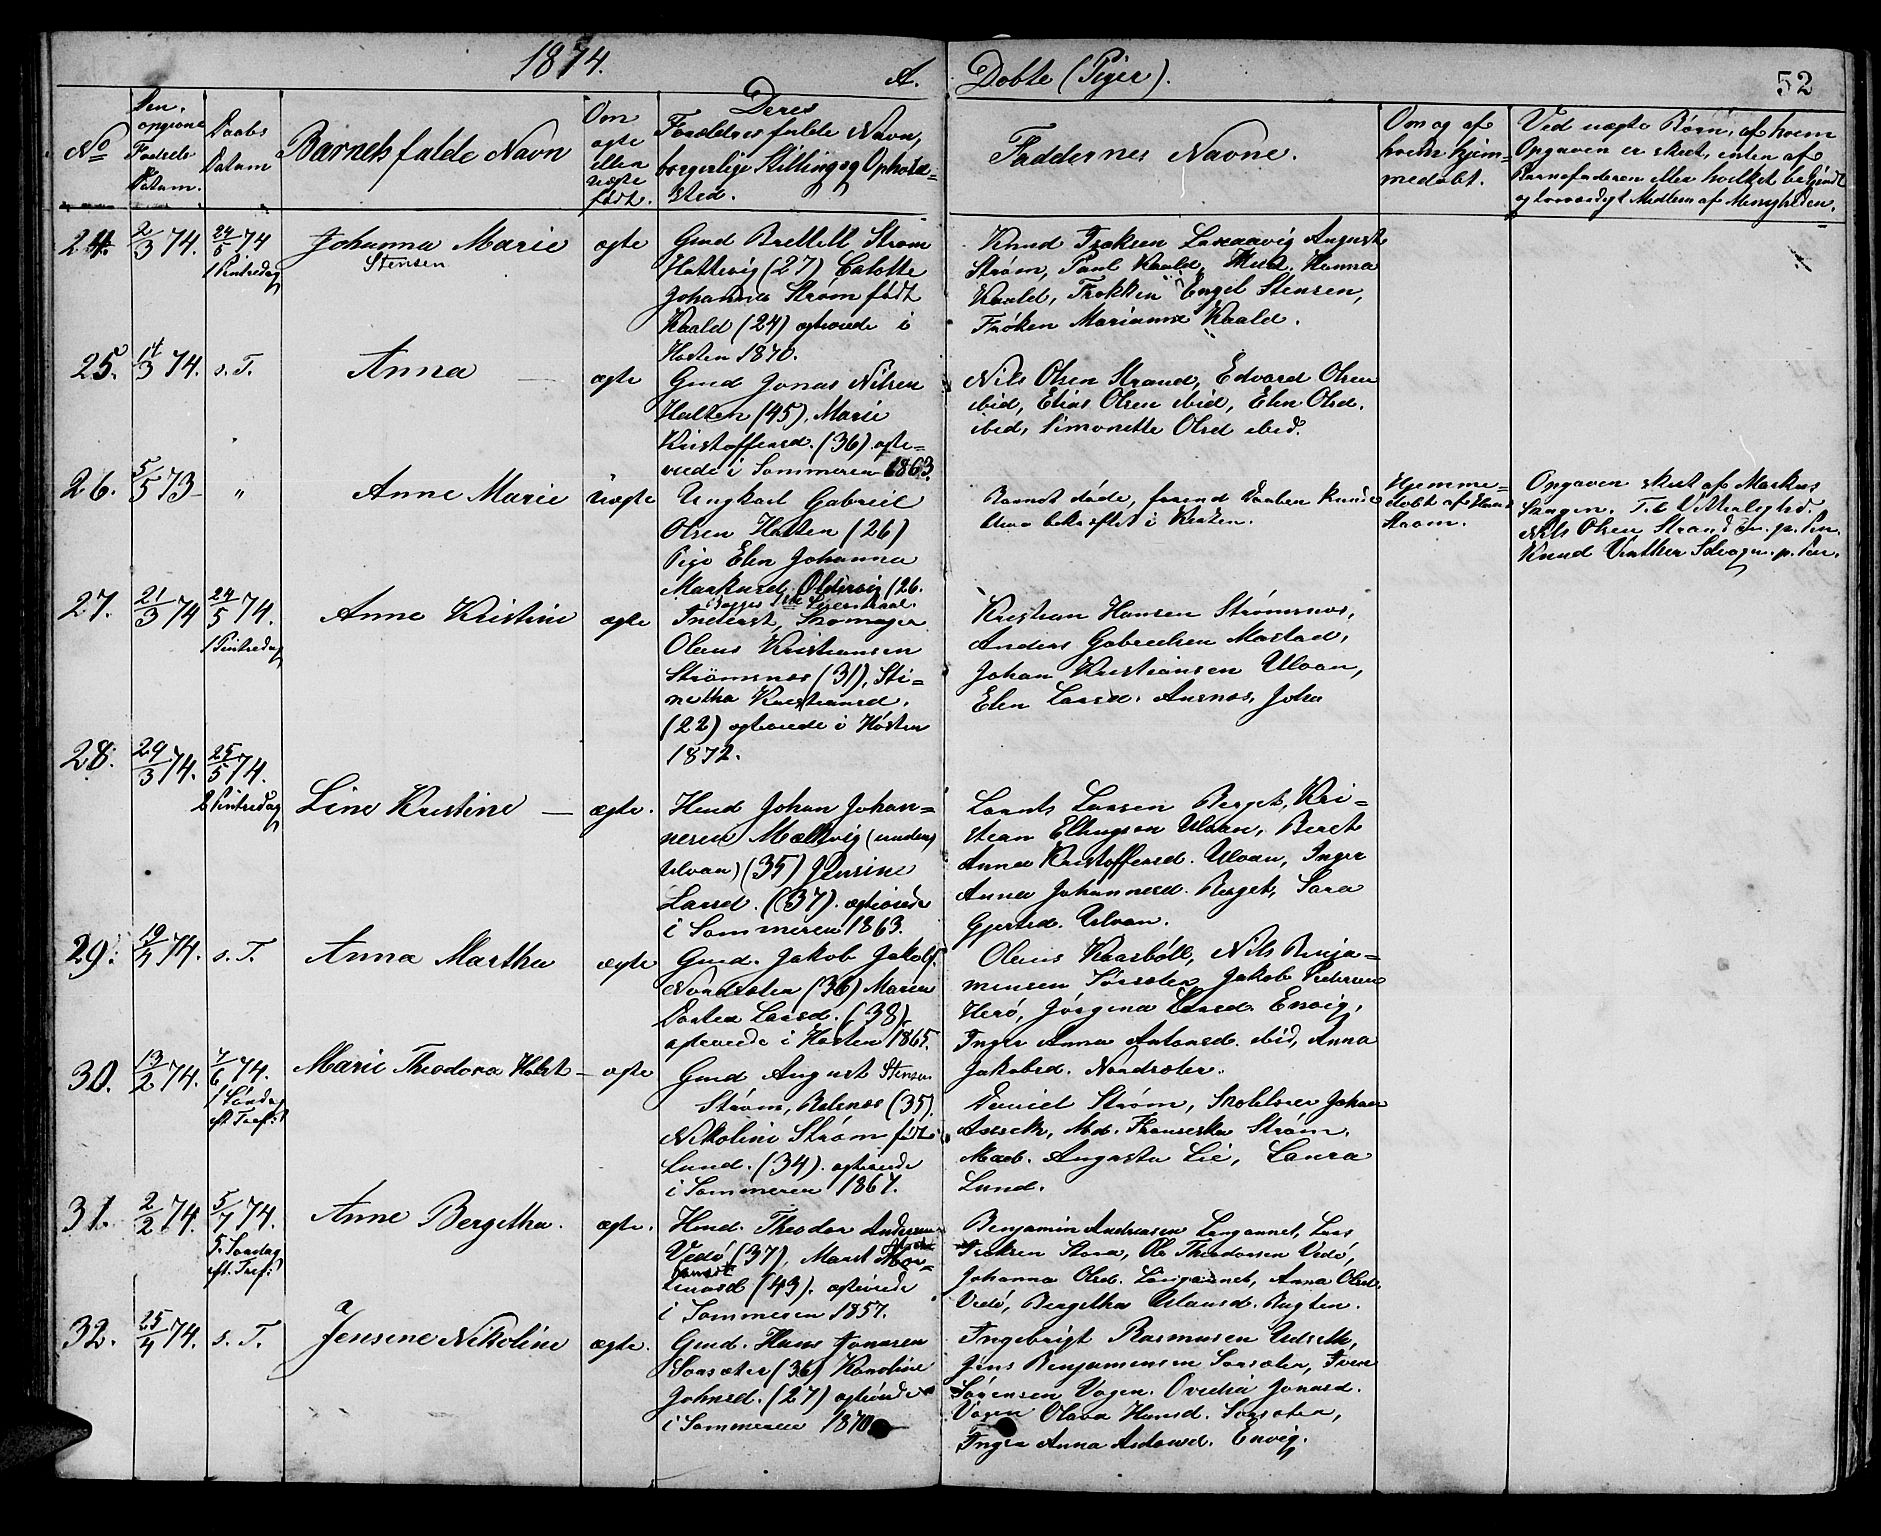 1874.
A. Døbte (Piger). 52
No
Den opgivne Fødsels Datum.
Daabs Datum
Barnets fulde Navn
Om ægte eller uægte født.
Deres Forældres fulde Navn, borgerlige Stilling og Opholdssted.
Faddernes Navne.
Om og af hvem hjemmedøbt.
Ved uægte Børn, af hvem Opgaven er skeet, enten af Barnefaderen eller hvilket
og troværdigt Medlem af Menigheden.
24. 2/3 74. 24/5 74 1 Pintsedag
Johanna Marie Stensen
ægte
Gmd Strøm
Hattevig (27)
Johanna Strøm født
Kaald (24) i
Høsten 1870.
Knud August
Strøm, Paul Kaald, Hanna
Kaald, Frøkken Engel Stensen,
Frøken Marianna Kaald.
25. 14/3 74. s. T.
Anna
ægte
Gmd Jonas Nilsen
Halten (45), Marie
Kristoffersd. (36) ægte=
viede i Sommeren 1863.
Nils Olsen Strand, Edvard Olsen
ibid, Elias Olsen ibid, Elen Olsd.
ibid, Simonette Olsd ibid.
26. 5/5 73 "
Anne Marie
Uægte
Ungkarl Gabriel
Olsen Halten (26)
Pige Elen Johanna
Markusd. Oldervig (26.
Begges 1ste Leiermaal.
Barnet døde, forend Daaben kunde
blive bekræftet i Kirken.
Hjemme=
døbt af Hans
Strøm.
Opgaven skeet af Markus
Til Vitterlighed.
Nils Olsen Strand m. p. Pen.
Knud Vinther m. p. Pen.
27. 21/3 74 24/5 74. 1 Pintsedag
Anne Kristine
ægte
Inderst, Skomager
Olaus Kristiansen
Strømsnes (31), Sti=
netha Kristiansd.
(22) ægteviede i Høsten
1872.
Kristian Hansen Strømsnes,
Anders Gabrielsen Mastad,
Johan Kristiansen Ulvan,
Elen Larsd. Ansnes, Joha
28. 29/3 74. 25/5 74. 2 Pintsedag
Line Kristine
ægte.
Hmd Johan Johan=
nesen (under
Ulvan) (35) Jensine
Larsd. (37). ægteviede
i Sommeren 1863.
Larsen Berget, Kri=
stian Ulvan, Beret
Anna Kristoffersd. Ulvan, Inger
Anna Johannesd. Berget, Sara
Gjertsd. Ulvan.
29. 19/4 74. s. T.
Anna Martha
ægte
Gmd. Jakob Jakobs.
Nordsæter (36) Maren
Dortea Larsd. (38)
ægteviede i Høsten 1865.
Olaus Kaasbøll, Nils Benja=
minsen Sørsæter, Jakob Pedersen
Herø, Jørgina Larsd. Envig,
Inger Anna Antonsd. ibid, Anna
Jakobsd. Nordsæter.
30. 13/2 74. 7/6 74. 1 Søndag eft. Tref:
Marie Theodora Holst
ægte
Gmd August Stensen
Strøm, (35).
Nikoline Strøm født
Lund. (34). ægteviede
i Sommeren 1867.
Daniel Strøm, Skolelærer Johan
Md. Franseska Strøm,
Mad. Augusta Lie, Laura
Lund.
31. 2/2 74. 5/7 74. 5. Søndag eft. Tref:
Anne Bergetha.
ægte.
Hmd. Theodor Andersen
Vedø (37), Maret
(43). ægteviede
i Sommeren 1857.
Benjamin Andreasen Langannet, Lars
Stora, Ole Theodorsen Vedø,
Johanna Olsd. Langannet, Anna Olsd.
Vedø, Bergetha Bugten.
32. 25/4 74. s. T.
Jensine Nikoline
ægte.
Gmd. Hans Jonasen
Sørsæter (36) Karoline
Johnsd. (27) ægteviede
i Sommeren 1870
Ingebrigt Rasmusen Udseth,
Jens Benjaminsen Sørsæter, Iver
Sørensen Vagen. Ovedia Jonasd.
Vagen Olava Hansd. Sørsæter,
Inger Anna Antonsd. Envig.